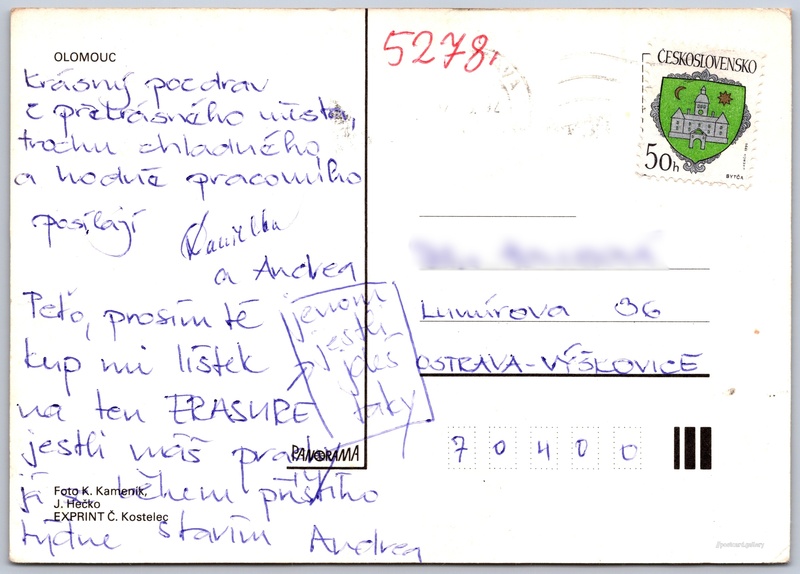 OLOMOUC
Krásný pozdrav
z překrásného města,
trochu chladného
a hodně pracovního
posílají
a Andrea
Peťo, prosím tě
kup mi lístek
na ten ERASURE
jestli máš prachy
já s během příštího
týdne stavím Andrea
jenom
jestli
jdeš
taky
PANORAMA
Foto K. Kameník,
J. Hečko
EXPRINT Č. Kostelec
5278
ČESKOSLOVENSKO
50h
BYTČA
Lumírova 96
OSTRAVA-VÝŠKOVICE
70400